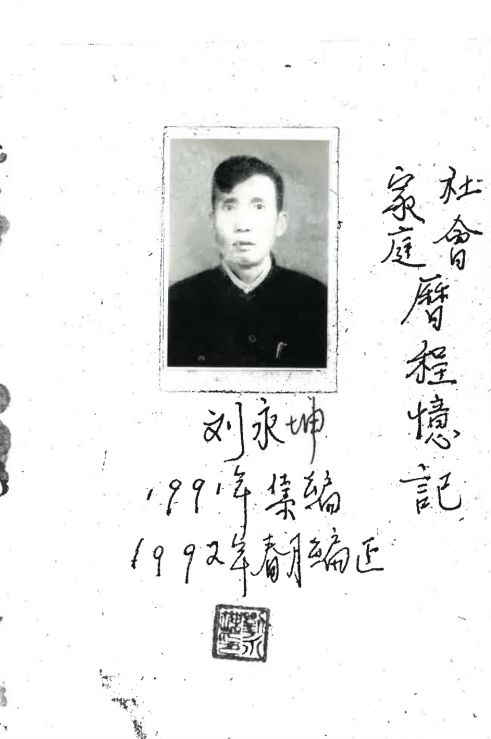 社會
家庭
曆程憶記
刘永坤
1991年集编
1992年春月编正
劉永坤印